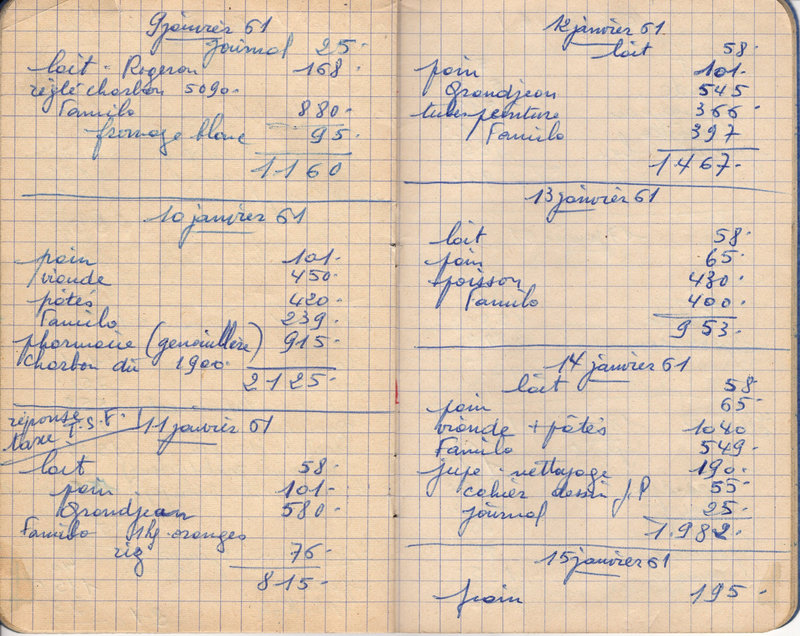 9 janvier 61
journal 25.
lait - Rogeron 168.
réglé charbon 5090.
Familo 880.
fromage blanc 95.
1160
10 janvier 61
pain 101.
viande 450.
pâtés 420.
Familo 239.
pharmacie (genouillère) 915.
charbon dû 1900.
2125.
réponse T.S.F.
taxe
11 janvier 61
lait 58.
pain 101.
Grandjean 580.
Familo 1kg oranges
riz 76.
815.
12 janvier 61
lait 58.
pain 101.
Grandjean 545
tubes peinture 366
Familo 397
1467.
13 janvier 61
lait 58.
pain 65.
poisson 430.
Familo 400.
953.
14 janvier 61
lait 58
pain 65.
viande + pâtés 1040
Familo 549.
jupe - nettoyage 190.
cahier dessin J.P 55.
journal 25.
1.982.
15 janvier 61
pain 195.